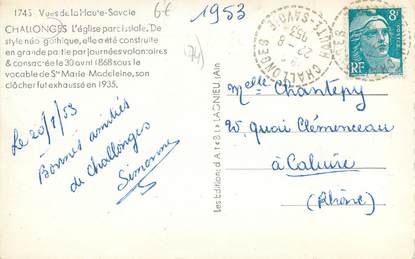 1745 - Vues de la Haute-Savoie
CHALLONGES L'église paroissiale. De
style néo-gothique, elle a été construite
en grande partie par journées volontaires
& consacrée le 30 avril 1868 sous le
vocable de Ste Marie-Madeleine, son
clocher fut exhaussé en 1935.
6€
1953
(74)
Le 20/7/53
Bonnes amitiés
de challonges
Simonne
Les Editions d'Art de B. Le LAGNIEU (Ain
CHALLONGES
HAUTE-SAVOIE
8F
RF
POSTES
Melle Chantepy
quai Clémenceau
à Caluire
(Rhône)